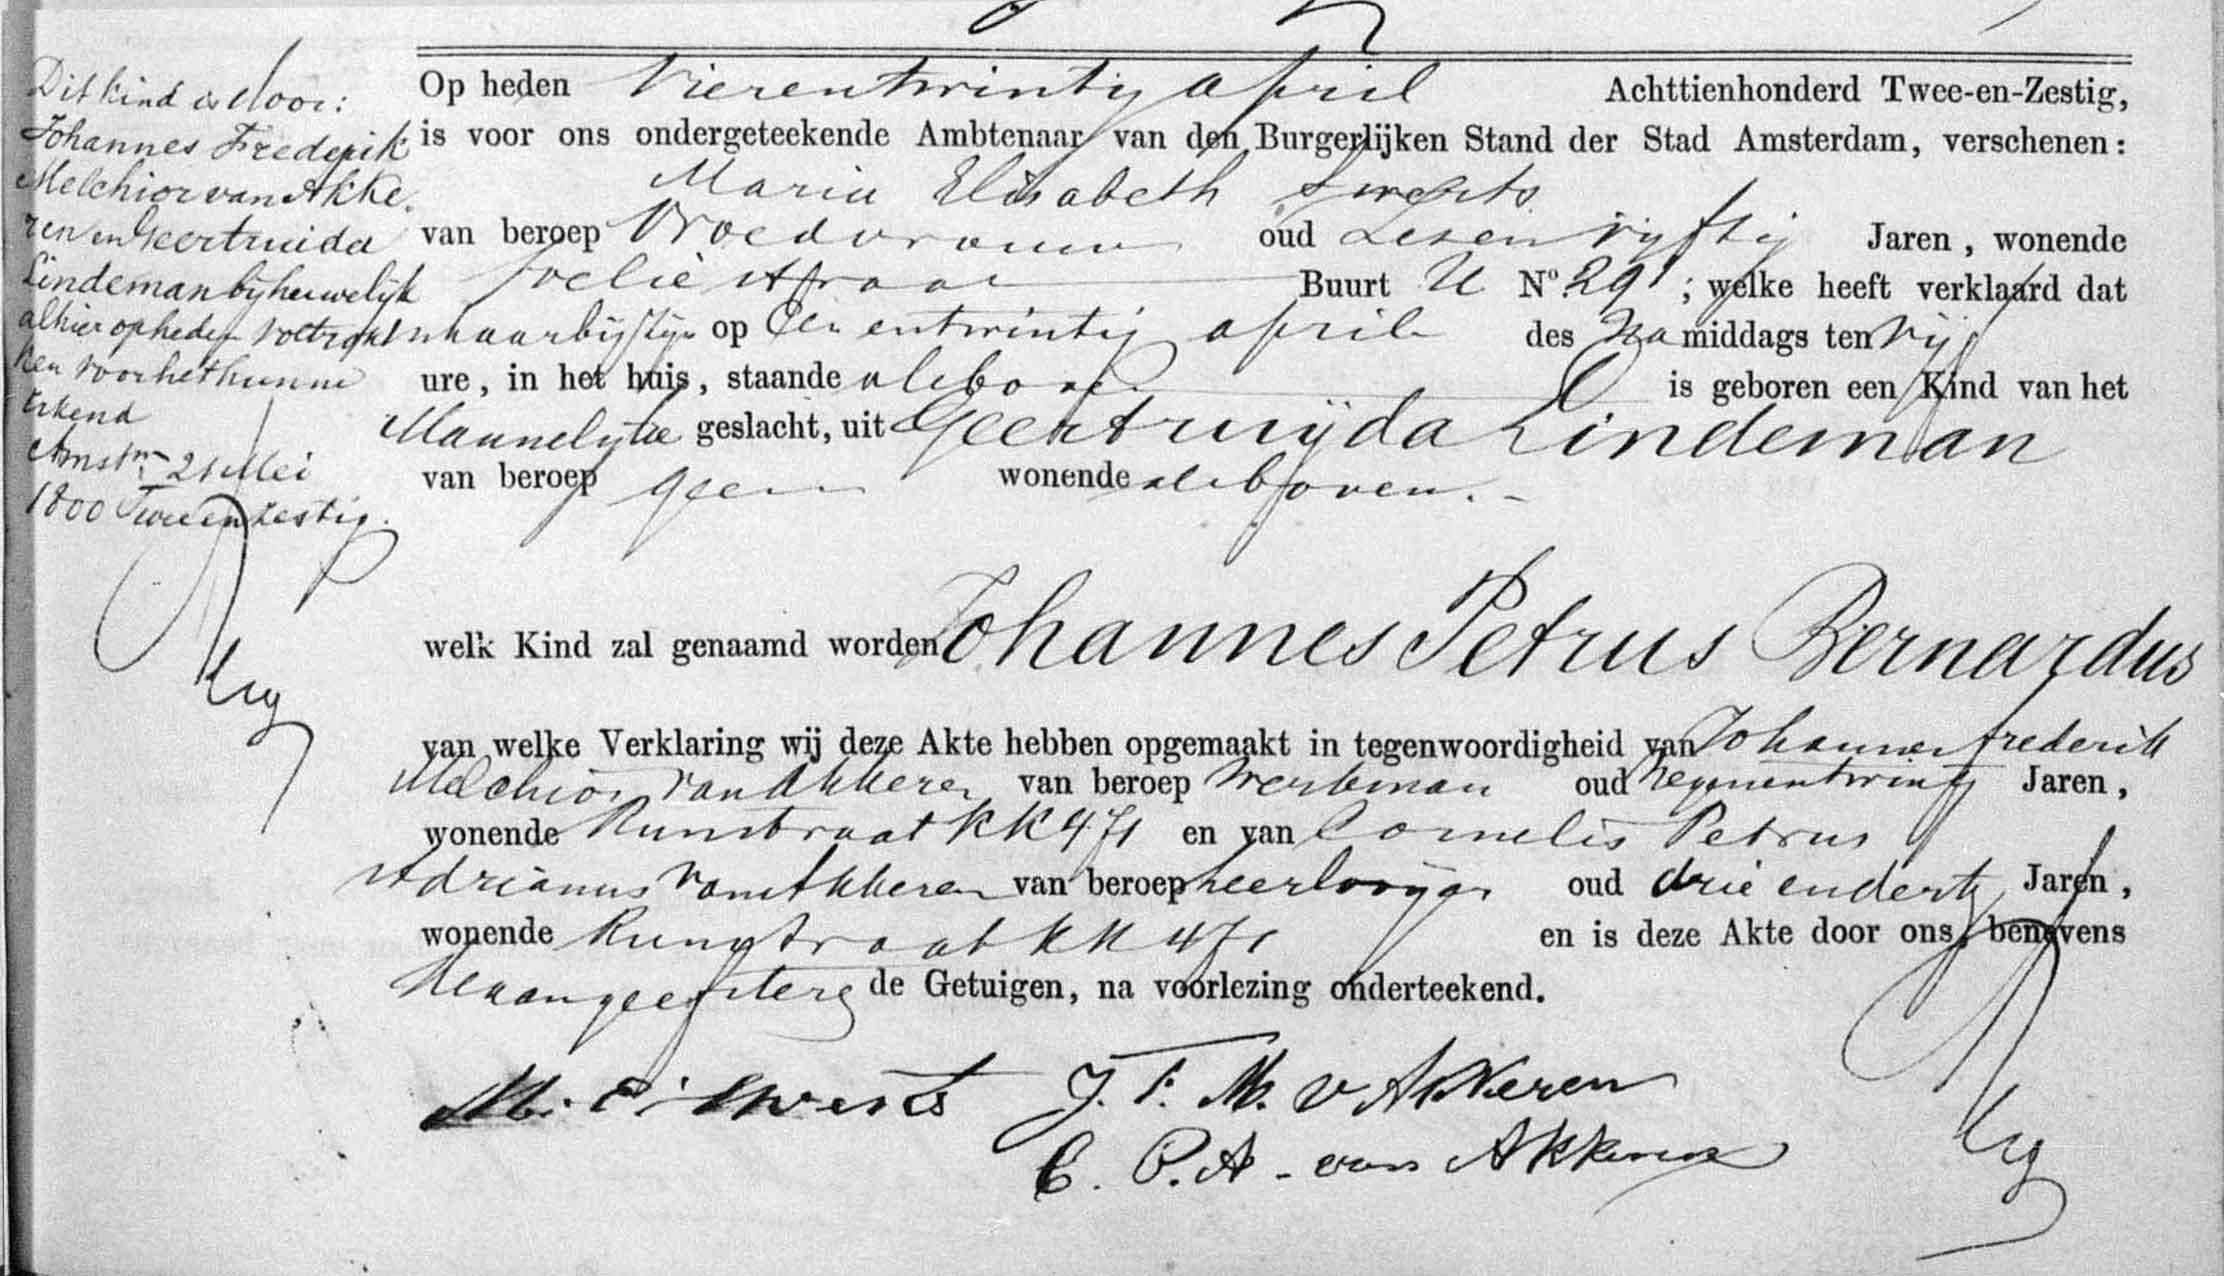 Dit kind is door:
Johannes Frederik
Melchior van Akke-
ren en Geertruida
Lindeman bij huwelijk
alhier op heden voltrok
ken voor het hunne
erkend
Amstm 21 Mei
1800 Twee en zestig.
Op heden Vierentwintig april Achttienhonderd Twee-en-Zestig,
is voor ons ondergeteekende Ambtenaar van den Burgerlijken Stand der Stad Amsterdam, verschenen:
Maria Elisabeth Swerts
van beroep Vroedvrouw oud Zesenvyftig Jaren, wonende
Foeliestraat Buurt U No. 29; welke heeft verklaard dat
in haar bijzijn op Een entwintig april des Namiddags ten vijf
ure, in het huis, staande alsboven is geboren een Kind van het
Mannelyke geslacht, uit Geertruijda Lindeman
van beroep geen wonende alsboven.
welk Kind zal genaamd worden Johannes Petrus Bernardus
van welke Verklaring wij deze Akte hebben opgemaakt in tegenwoordigheid van Johannes frederik
Melchior van Akkeren van beroep Werkman oud Negenentwintig Jaren,
wonende Runstraat KK 471 en van Cornelis Petrus
Adrianus van Akkeren van beroep oud drie endertig Jaren,
wonende Runstraat KK 471 en is deze Akte door ons, benevens
de Aangeefster en de Getuigen, na voorlezing onderteekend.
M. E. Swerts J. F. M. v Akkeren
C. P. A. van Akkeren